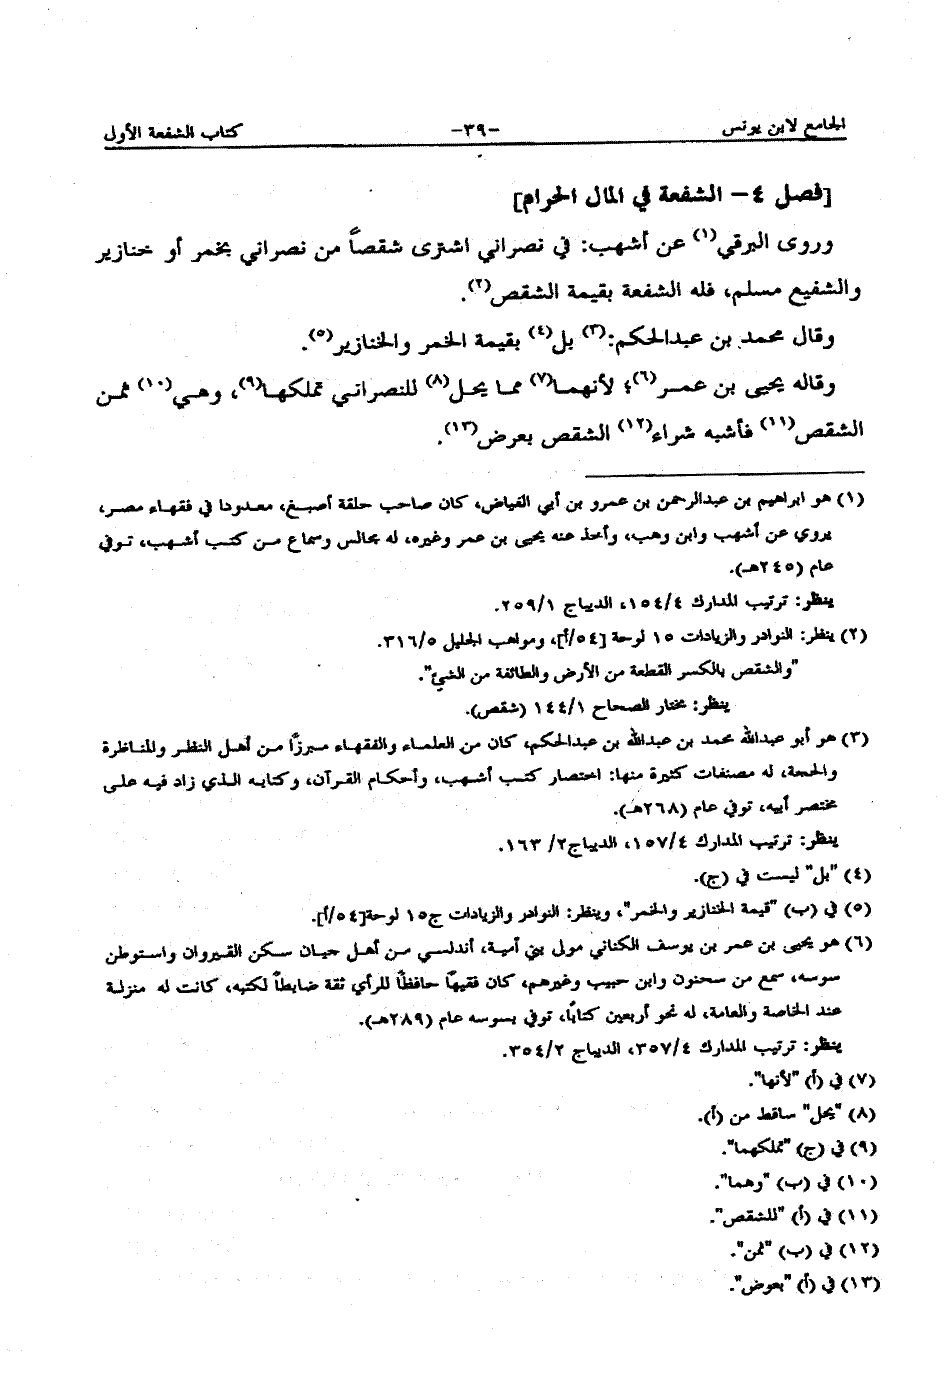 الجامع لابن يونس -٣٩- كتاب الشفعة الأول
[فصل ٤- الشفعة في المال الحرام]
وروى البرقي(١) عن أشهب: في نصراني اشترى شقصاً من نصراني بخمر أو خنازير
والشفيع مسلم، فله الشفعة بقيمة الشقص(٢).
وقال محمد بن عبدالحكم:(٣) بل(٤) بقيمة الخمر والخنازير(٥).
وقاله يحيى بن عمر(٦)؛ لأنهما(٧) مما يحل(٨) للنصراني تملكها(٩)، وهي(١٠) ثمن
الشقص(١١) فأشبه شراء(١٢) الشقص بعرض(١٣).
(١) هو ابراهيم بن عبدالرحمن بن عمرو بن أبي الفياض، كان صاحب حلقة أصبغ، معدودا في فقهاء مصر،
يروي عن أشهب وابن وهب، وأخذ عنه يحيى بن عمر وغيره، له مجالس وسماع من كتب أشهب، توفي
عام (٢٤٥هـ).
ينظر: ترتيب المدارك ١٥٤/٤، الديباج ٢٥٩/١.
(٢) ينظر: النوادر والزيادات ١٥ لوحة [٥٤/أ]، ومواهب الجليل ٣١٦/٥.
"والشقص بالكسر القطعة من الأرض والطائفة من الشيء".
ينظر: مختار الصحاح ١٤٤/١ (شقص).
(٣) هو أبو عبدالله محمد بن عبدالله بن عبدالحكم، كان من العلماء والفقهاء مبرزاً من أهل النظر والمناظرة
والحجة، له مصنفات كثيرة منها: اختصار كتب أشهب، وأحكام القرآن، وكتابه الذي زاد فيه على
مختصر أبيه، توفي عام (٢٦٨هـ).
ينظر: ترتيب المدارك ١٥٧/٤، الديباج٢/ ١٦٣.
(٤) "بل" ليست في (ج).
(٥) في (ب) "قيمة الخنازير والخمر"، وينظر: النوادر والزيادات ج١٥ لوحة[٥٤/أ].
(٦) هو يحيى بن عمر بن يوسف الكناني مولى بني أمية، أندلسي من أهل جيان سكن القيروان واستوطن
سوسه، سمع من سحنون وابن حبيب وغيرهم، كان فقيهًا حافظًا للرأي ثقة ضابطاً لكتبه، كانت له منزلة
عند الخاصة والعامة، له نحو أربعين كتابًا، توفي بسوسه عام (٢٨٩هـ).
ينظر: ترتيب المدارك ٣٥٧/٤، الديباج ٣٥٤/٢.
(٧) في (أ) "لأنها".
(٨) "يحل" ساقط من (أ).
(٩) في (ج) "تملكهما".
(١٠) في (ب) "وهما".
(١١) في (أ) "للشقص".
(١٢) في (ب) "ثمن".
(١٣) في (أ) "بعوض".